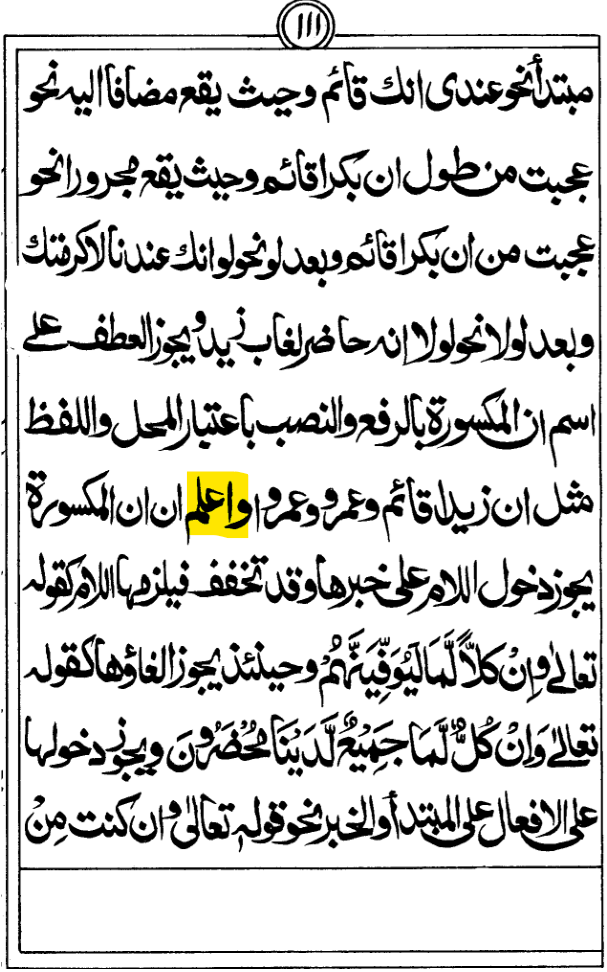 ١١١
مبتدأ نحو عندی انك قائم وحيث يقع مضافا اليه نحو
عجبت من طول ان بكرا قائم وحيث يقع مجرورا نحو
عجبت من ان بكرا قائم وبعد لو نحو لو انك عندنا لاكرمتك
وبعد لولا نحو لولا انه حاضر لغاب زيد ويجوز العطف علے
اسم ان المكسورة بالرفع والنصب باعتبار المحل واللفظ
مثل ان زيدا قائم وعمرو وعمروا واعلم ان ان المكسورة
يجوز دخول اللام على خبرها وقد تخفف فيلزمها اللام كقوله
تعالےٰ وَاِنْ كلاًّ لَّمَا لَيُوَفِّيَنَّهُمْ وحينئذ يجوز الغاؤها كقوله
تعالےٰ وَاِنْ كُلٌّ لَّمَا جَمِيْعٌ لَّدَيْنَا مُحْضَرُوْنَ ويجوز دخولها
على الافعال على المبتدأ والخبر نحو قوله تعالىٰ وان كنت مِنْ